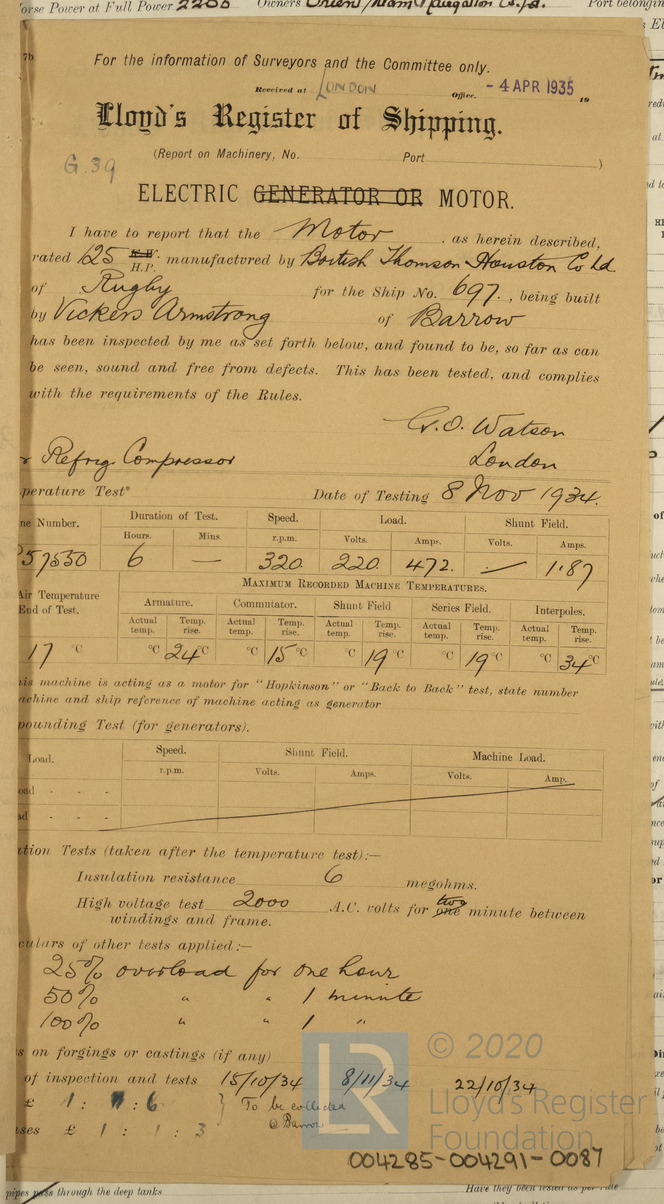 orse Power at Full Power 2200 Owners Orient Steam Navigation Co. Ld. Port belonging
7b
For the information of Surveyors and the Committee only.
Received at LONDON Office. - 4 APR 1935 19
Lloyd's Register of Shipping.
(Report on Machinery, No. Port )
G.39
ELECTRIC GENERATOR OR MOTOR.
I have to report that the Motor as herein described,
rated 125 K.W. H.P. manufactured by British Thomson-Houston Co Ld.
of Rugby for the Ship No. 697., being built
by Vickers Armstrong of Barrow
has been inspected by me as set forth below, and found to be, so far as can
be seen, sound and free from defects. This has been tested, and complies
with the requirements of the Rules.
G.O. Watson
London
r Refrig Compressor
perature Test* Date of Testing 8 Nov 1934.
ne Number. Duration of Test. Speed. Load. Shunt Field.
Hours. Mins. r.p.m. Volts. Amps. Volts. Amps.
57530 6 — 320 220 472. — 1.87
Air Temperature End of Test. MAXIMUM RECORDED MACHINE TEMPERATURES.
Armature. Commutator. Shunt Field Series Field. Interpoles.
Actual temp. Temp. rise. Actual temp. Temp. rise. Actual temp. Temp. rise. Actual temp. Temp. rise. Actual temp. Temp. rise.
17 °C °C 24°C °C 15°C °C 19°C °C 19°C °C 34°C
is machine is acting as a motor for "Hopkinson" or "Back to Back" test, state number
achine and ship reference of machine acting as generator
pounding Test (for generators).
Load. Speed. Shunt Field. Machine Load.
r.p.m. Volts. Amps. Volts. Amp.
oad - - -
ad - - -
ation Tests (taken after the temperature test):—
Insulation resistance 6 megohms.
High voltage test 2000 A.C. volts for one two minute between
windings and frame.
culars of other tests applied:—
25% overload for one hour
50% " " 1 minute
100% " " 1 "
s on forgings or castings (if any)
of inspection and tests 15/10/34 8/11/34 22/10/34
£ 1 : : 6 } To be collected
ses £ 1 : 1 : 3 @ Barrow
LR
© 2020
Lloyd's Register
Foundation
004285-004291-0087
pipes pass through the deep tanks Have they been tested as per rule